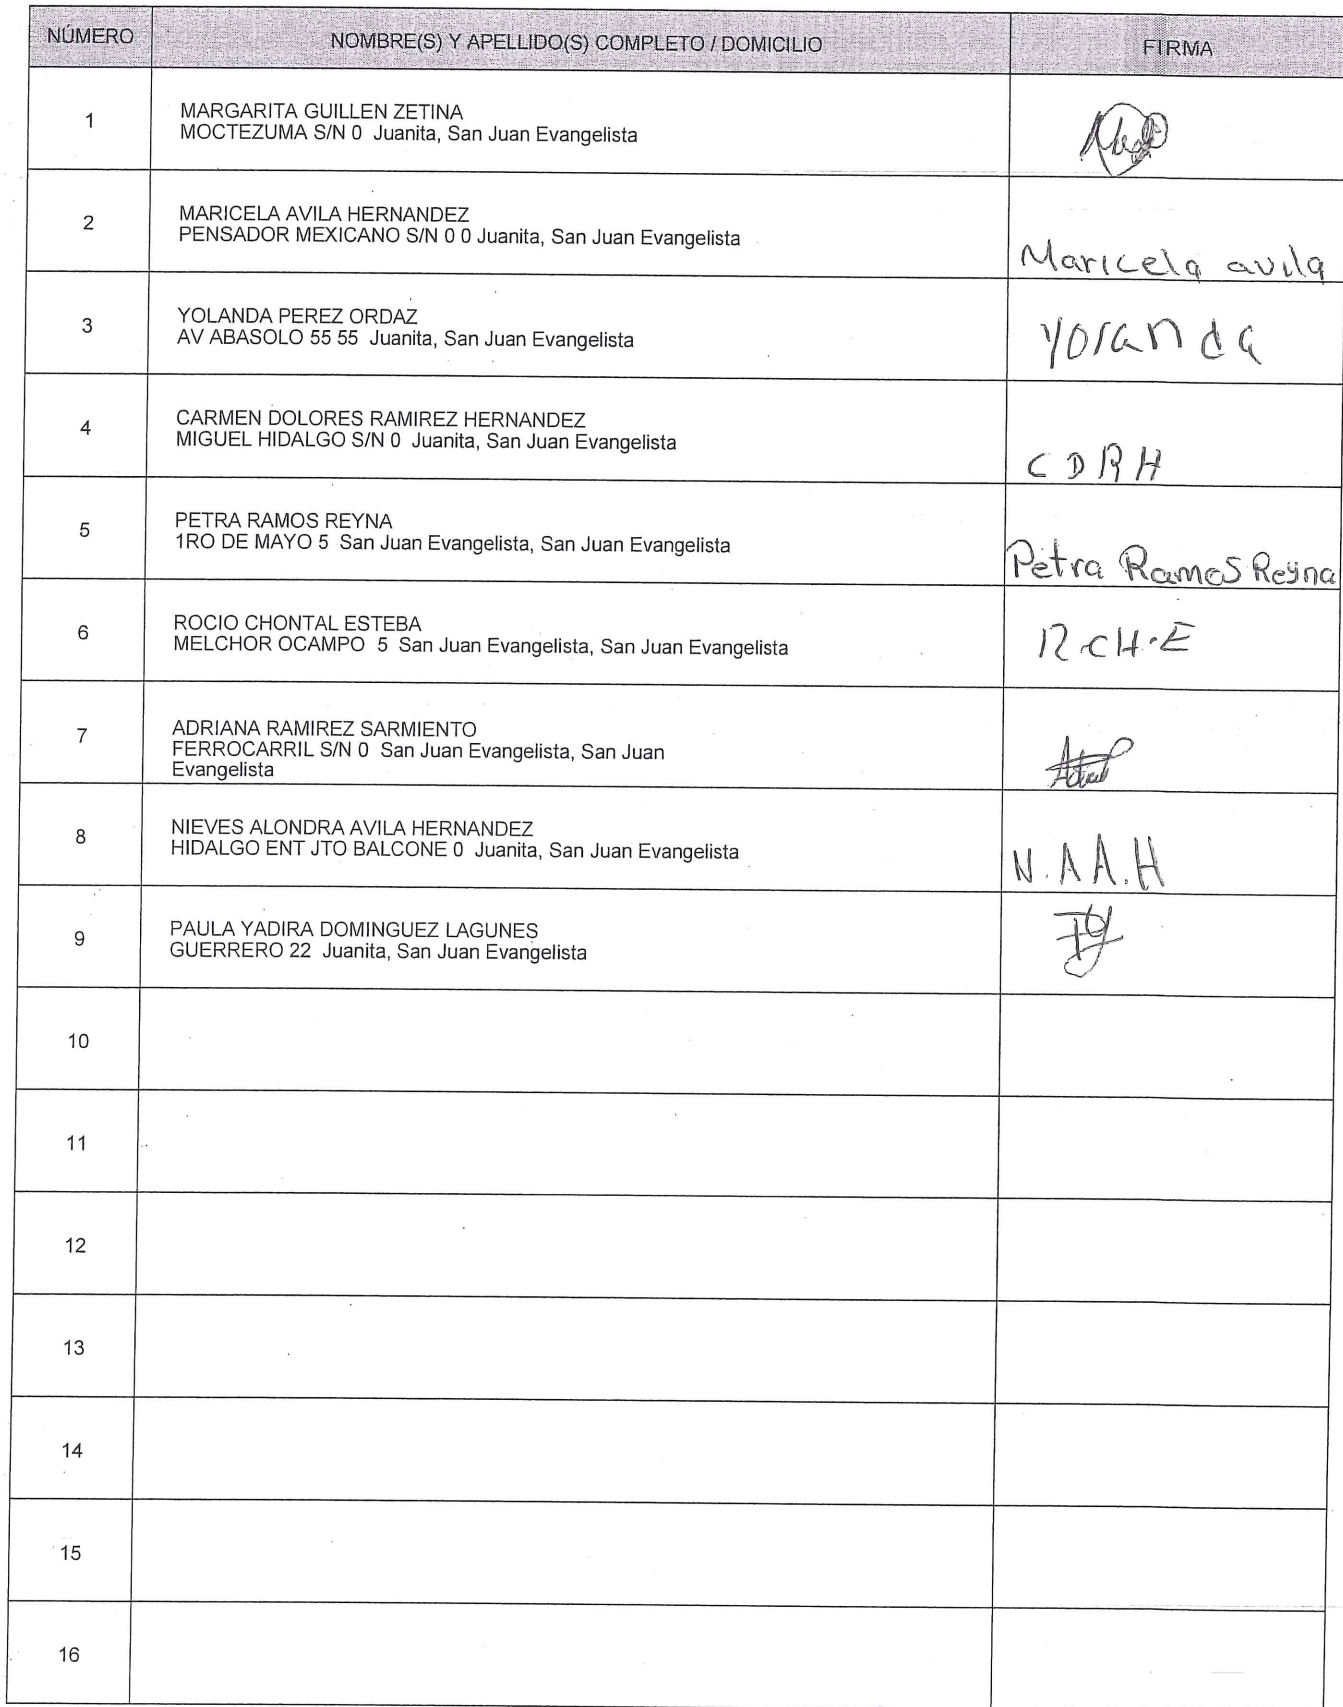 NÚMERO NOMBRE(S) Y APELLIDO(S) COMPLETO / DOMICILIO FIRMA
1 MARGARITA GUILLEN ZETINA
MOCTEZUMA S/N 0 Juanita, San Juan Evangelista
2 MARICELA AVILA HERNANDEZ
PENSADOR MEXICANO S/N 0 0 Juanita, San Juan Evangelista
Maricela avila
3 YOLANDA PEREZ ORDAZ
AV ABASOLO 55 55 Juanita, San Juan Evangelista
Yolanda
4 CARMEN DOLORES RAMIREZ HERNANDEZ
MIGUEL HIDALGO S/N 0 Juanita, San Juan Evangelista
C D R H
5 PETRA RAMOS REYNA
1RO DE MAYO 5 San Juan Evangelista, San Juan Evangelista
Petra Ramos Reyna
6 ROCIO CHONTAL ESTEBA
MELCHOR OCAMPO 5 San Juan Evangelista, San Juan Evangelista
R.CH.E
7 ADRIANA RAMIREZ SARMIENTO
FERROCARRIL S/N 0 San Juan Evangelista, San Juan
Evangelista
8 NIEVES ALONDRA AVILA HERNANDEZ
HIDALGO ENT JTO BALCONE 0 Juanita, San Juan Evangelista
N.A A.H
9 PAULA YADIRA DOMINGUEZ LAGUNES
GUERRERO 22 Juanita, San Juan Evangelista
10
11
12
13
14
15
16